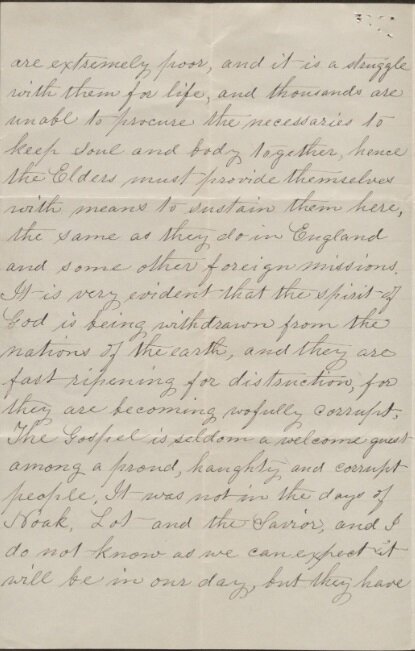 are extremely poor, and it is a struggle
with them for life, and thousands are
unable to procure the necessaries to
keep soul and body together, hence
the Elders must provide themselves
with means to sustain them here,
the same as they do in England
and some other foreign missions.
It is very evident that the spirit of
God is being withdrawn from the
nations of the earth, and they are
fast ripening for distruction, for
they are becoming wofully corrupt.
The Gospel is seldom a welcome guest
among a proud, haughty and corrupt
people. It was not in the days of
Noah, Lot and the Savior, and I
do not know as we can expect it
will be in our day, but they have